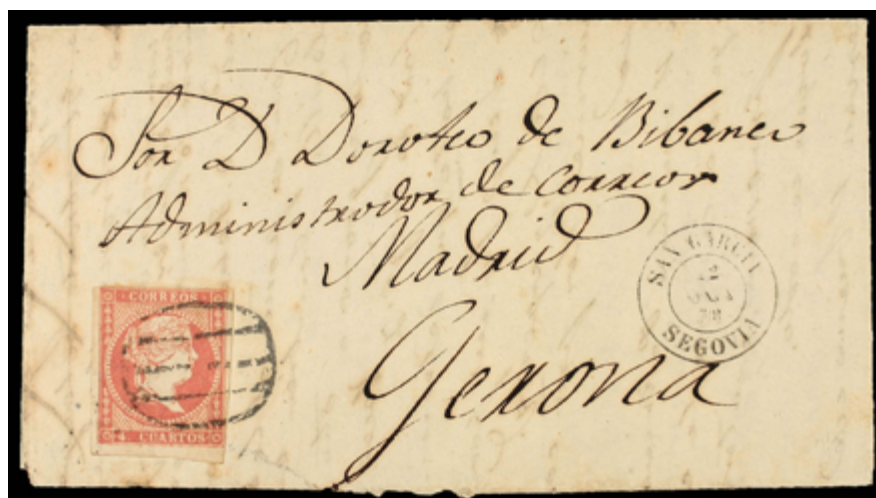 Sor D Doroteo de Bibanco
Administrador de Correos
Madrid
Gerona
SAN GARCIA
12
OCT
SEGOVIA
CORREOS
4 CUARTOS